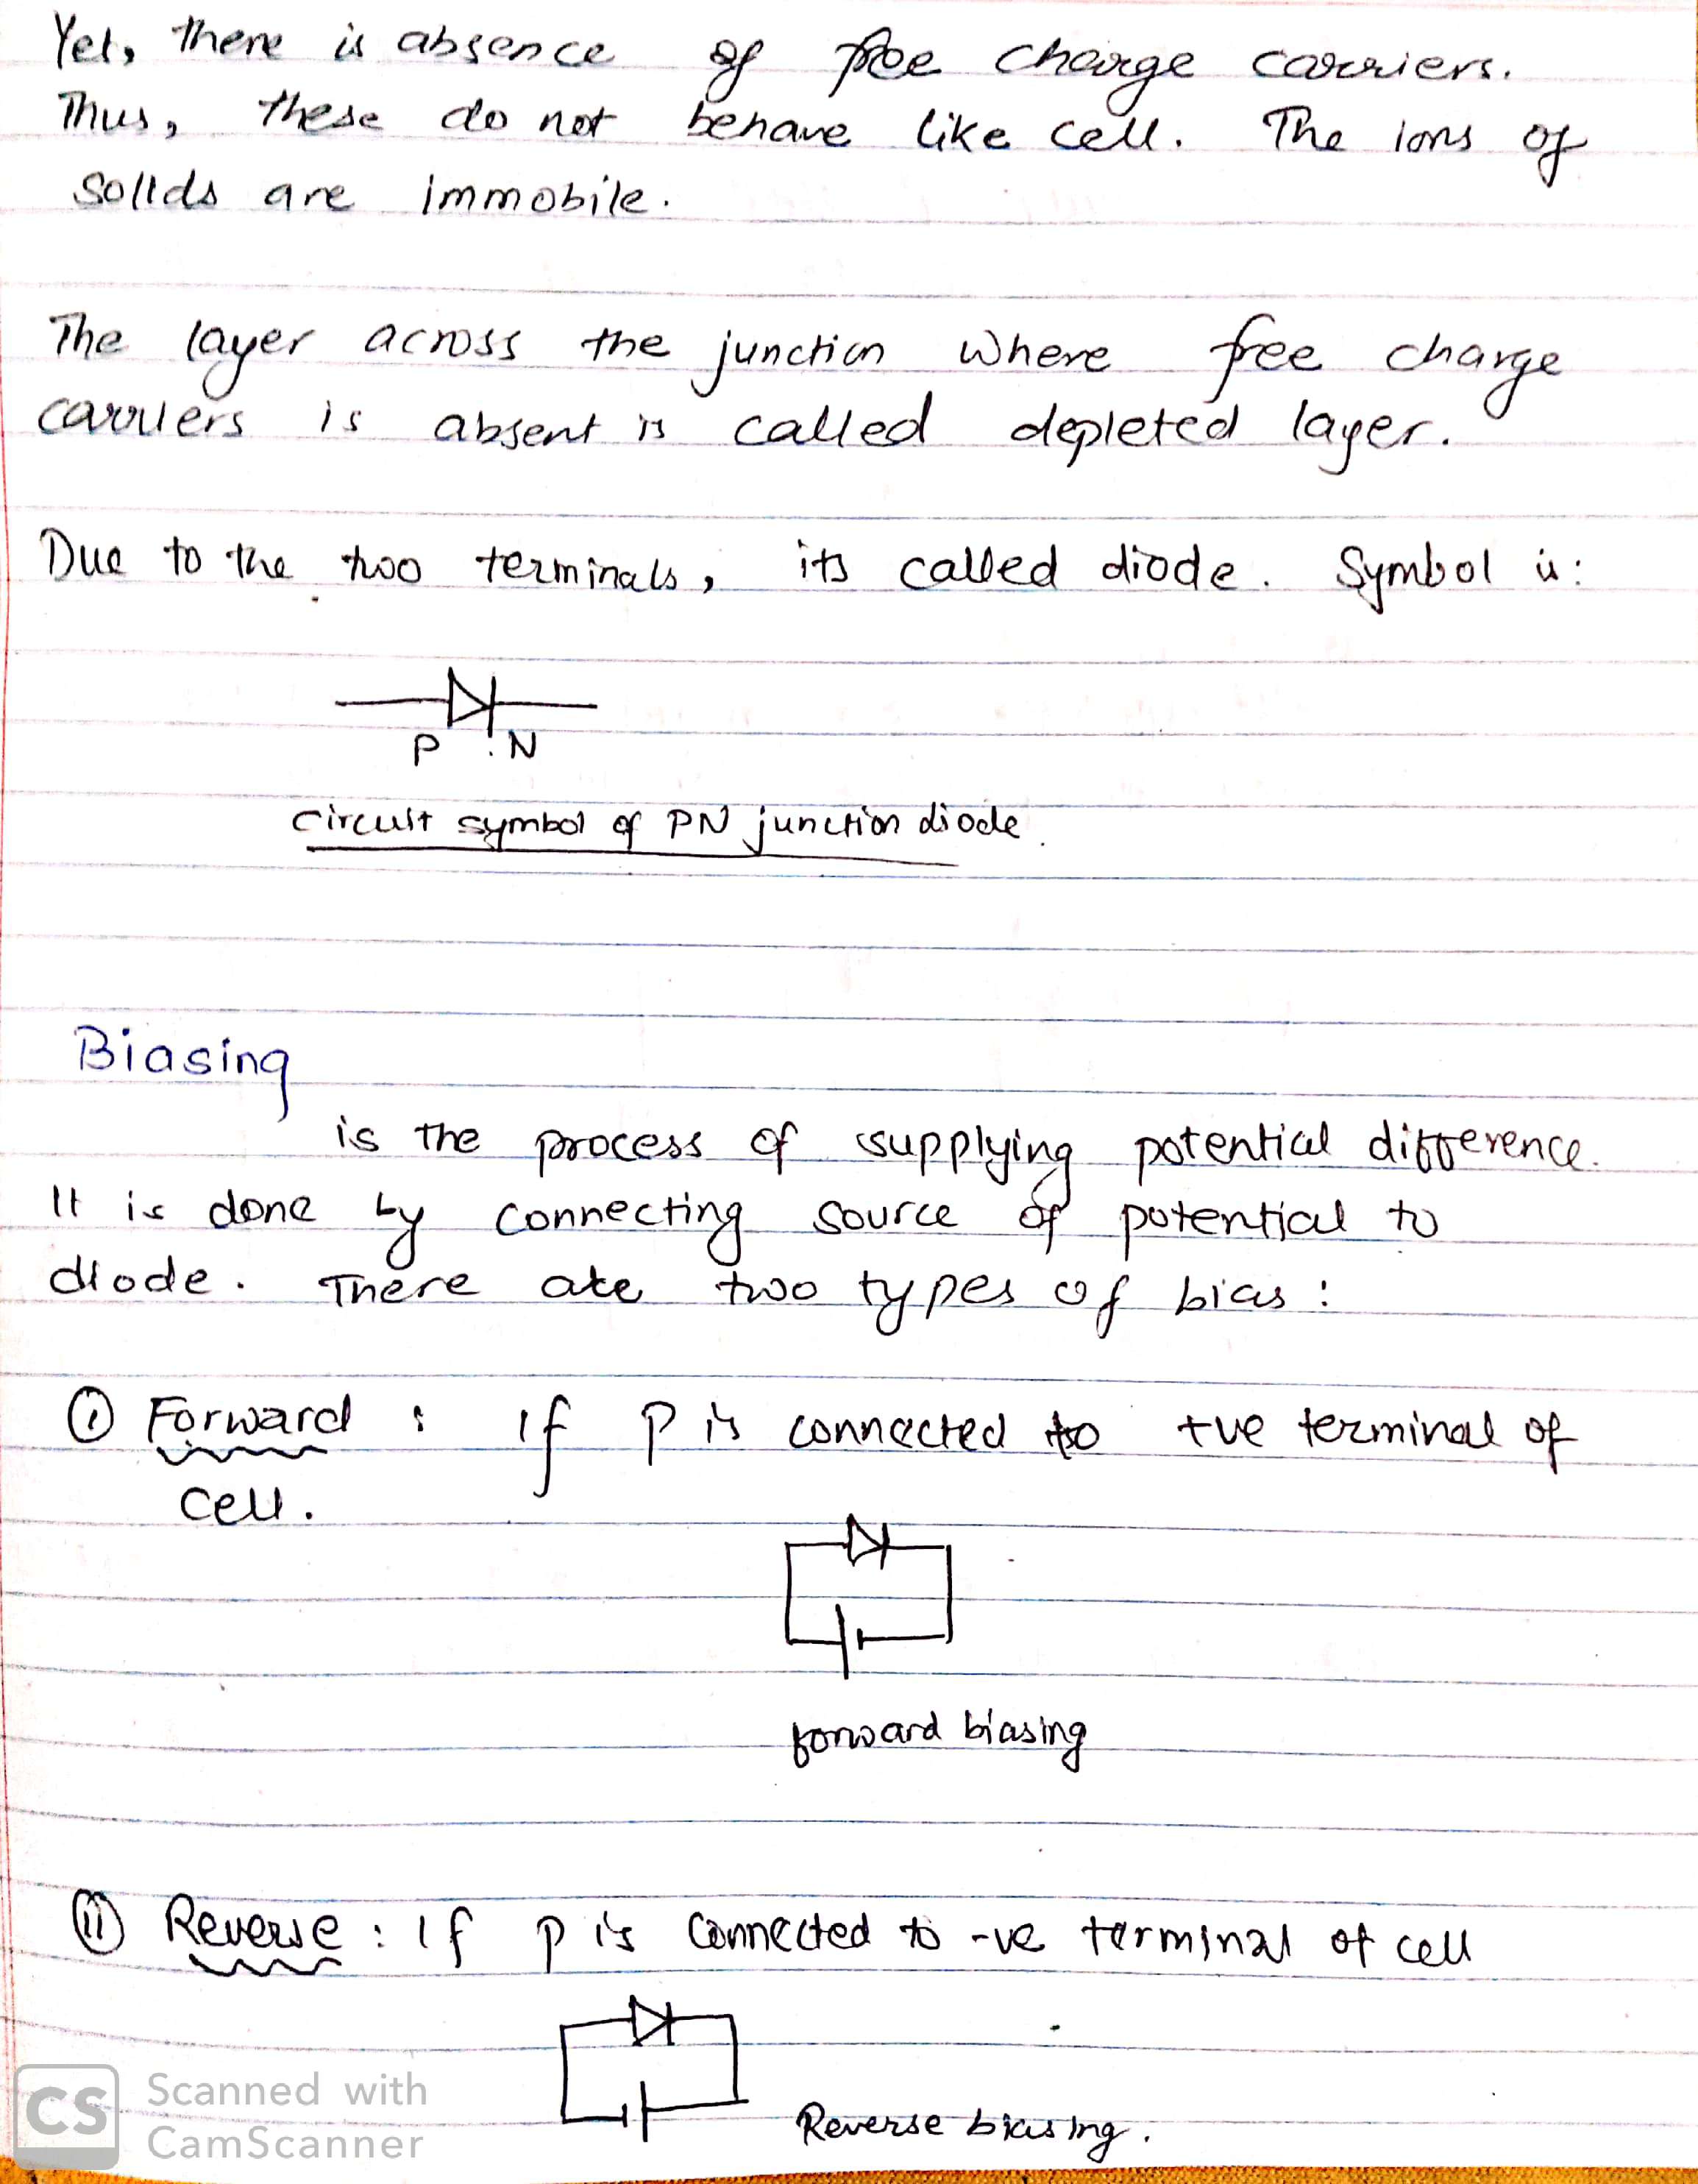 Yet, there is absence of free charge carriers.
Thus, these do not behave like cell. The ions of
solids are immobile.
The layer across the junction where free charge
carriers is absent is called depleted layer.
Due to the two terminals, its called diode. Symbol is:
P N
circuit symbol of PN junction diode.
Biasing
is the process of supplying potential difference.
It is done by connecting source of potential to
diode. There are two types of bias:
(i) Forward : if P is connected to +ve terminal of
cell.
forward biasing
(ii) Reverse : If P is connected to -ve terminal of cell
Reverse biasing.
CS Scanned with
CamScanner